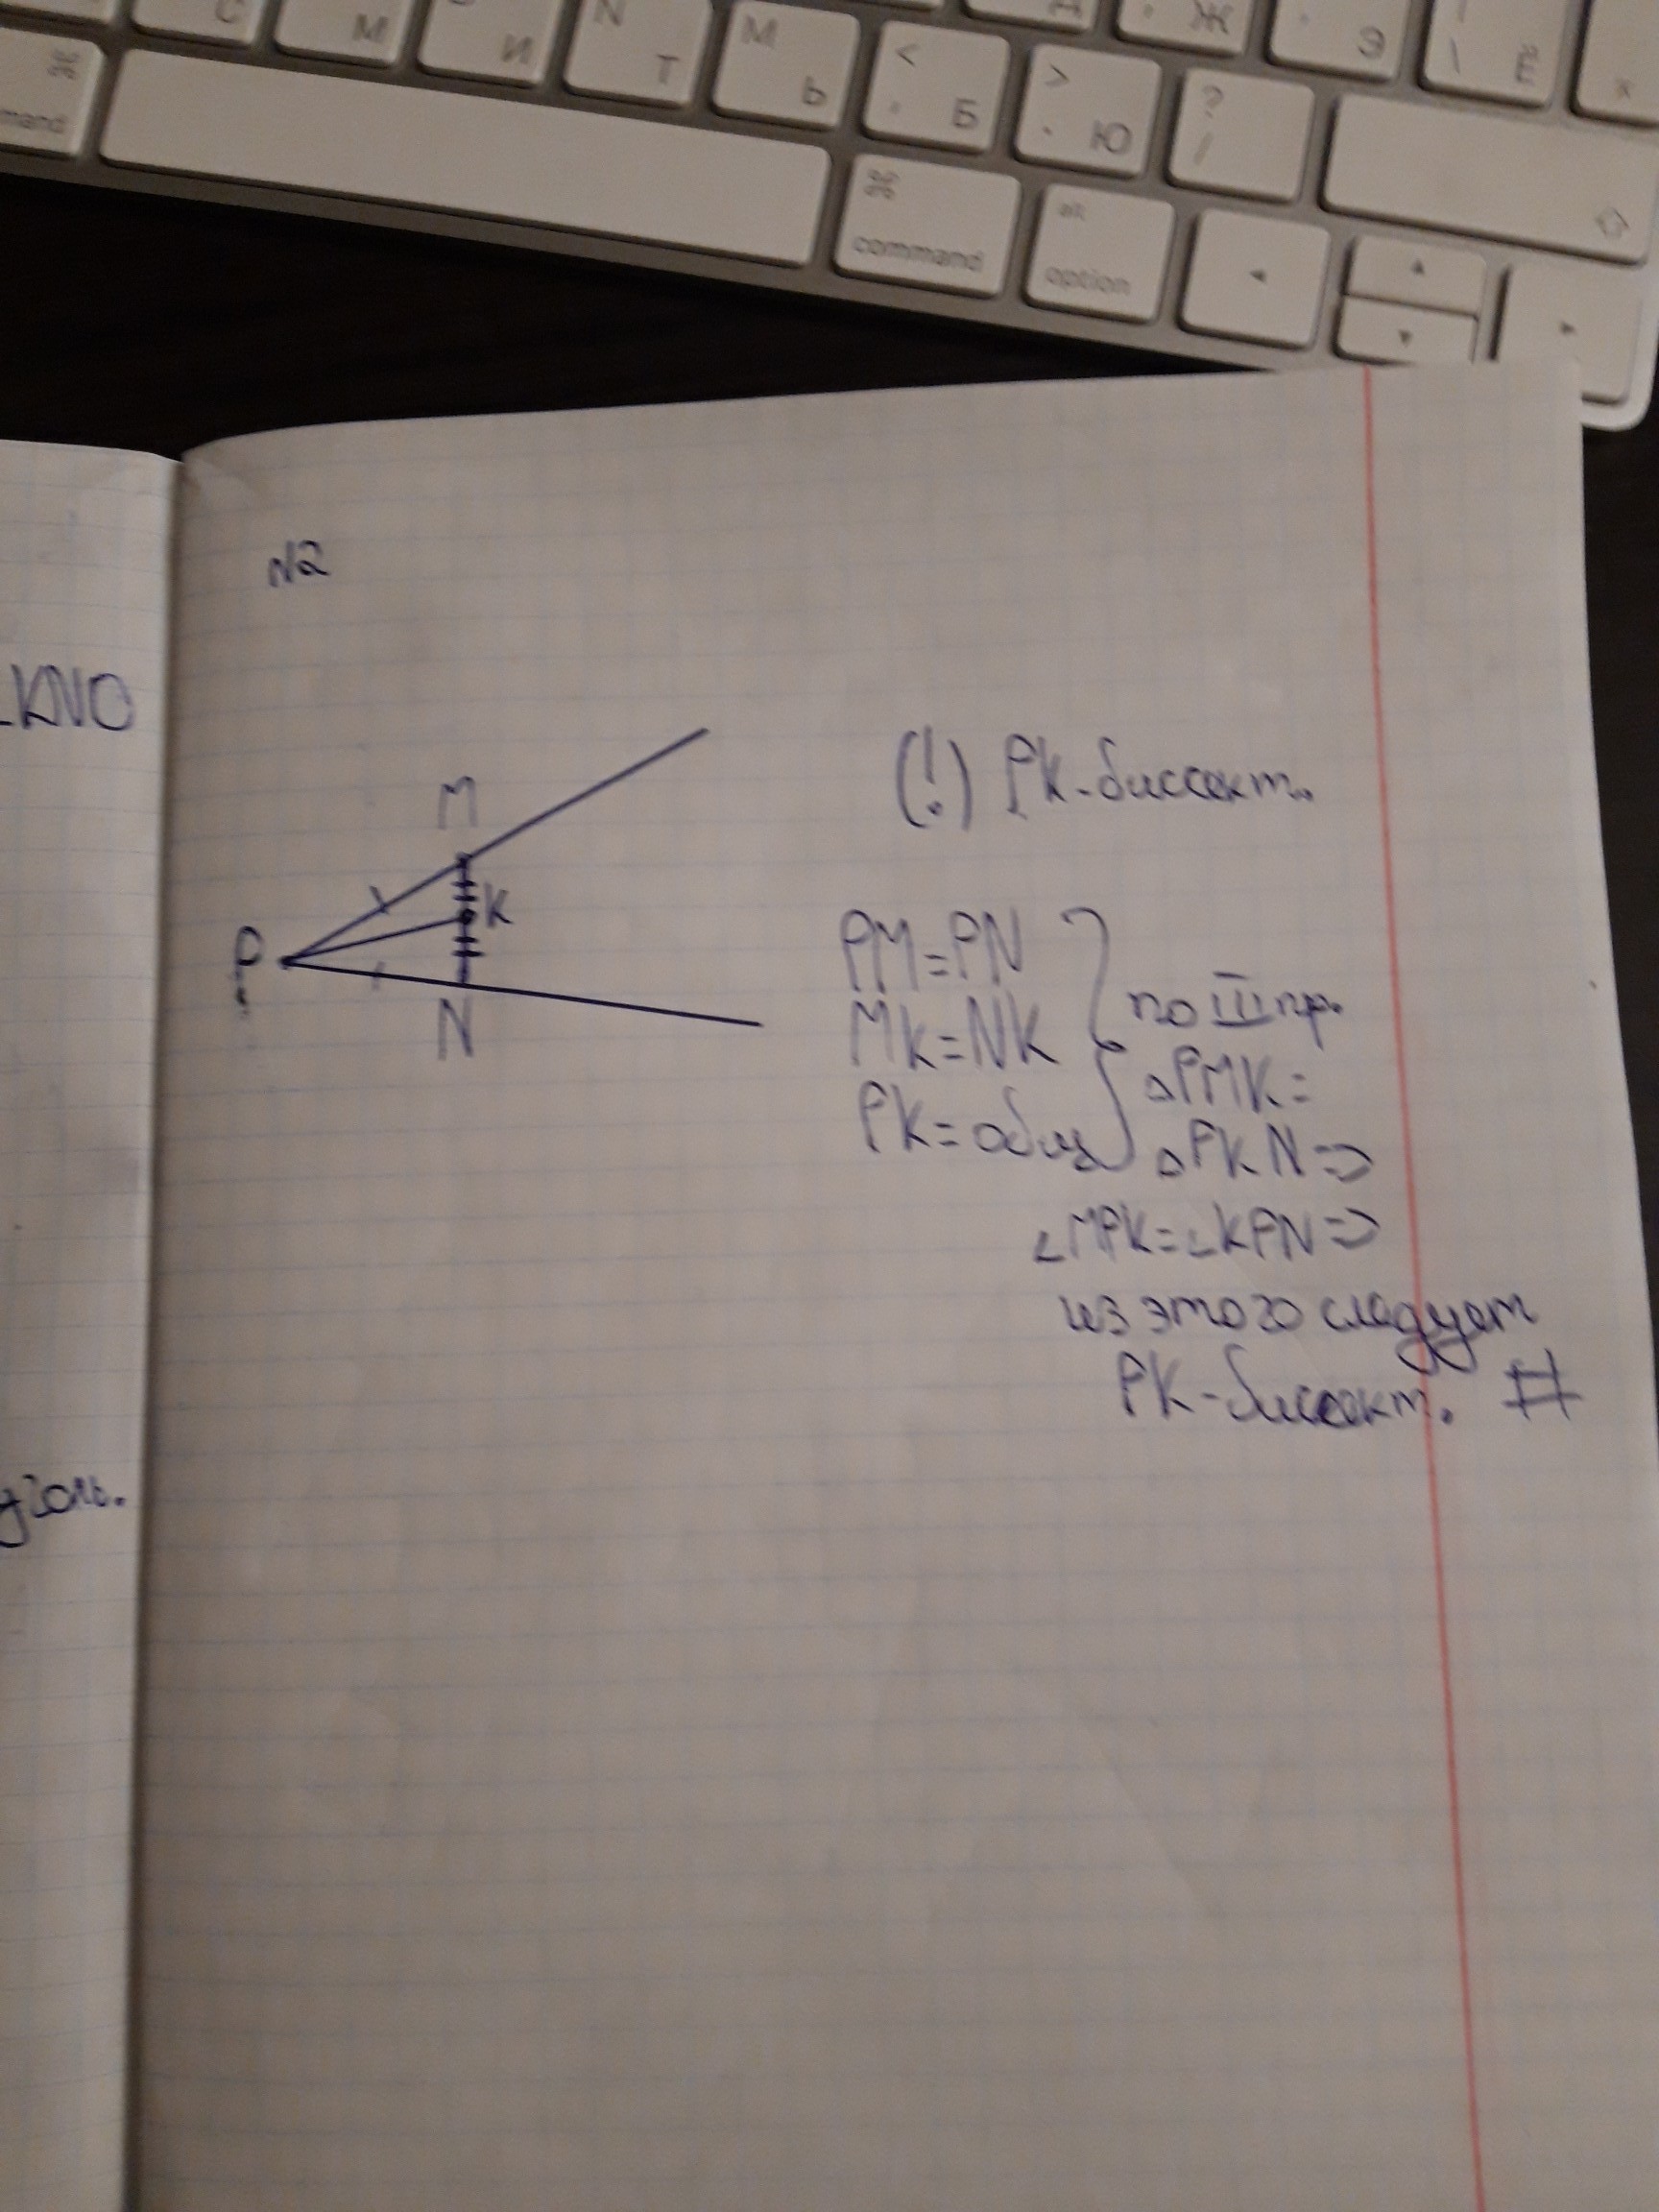 С
М
И
N Т
М Ь
< , Б
> . Ю
Ж
Э
\ Ё
? /
⌘
mand
⌘
command
alt
option
◄
▲
▼
►
N2
KNO
M
K
P
N
(!) PK-биссект.
PM=PN
MK=NK
PK=общ
по III пр.
△PMK=
△PKN=>
∠MPK=∠KPN=>
из этого следует
PK-биссект. #
уголь.